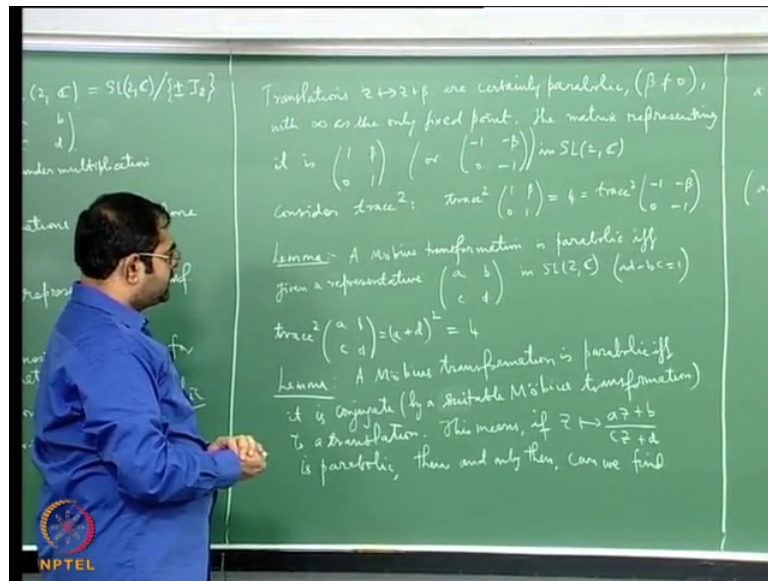 (2, ℂ) = SL(2,ℂ)/{± I₂}
b
d)
under multiplication
ations
one
repres
for
Translations z ↦ z+β are certainly parabolic, (β ≠ 0),
with ∞ as the only fixed point. The matrix representing
it is (1 β; 0 1) (or (-1 -β; 0 -1)) in SL(2,ℂ)
consider trace²: trace² (1 β; 0 1) = 4 = trace² (-1 -β; 0 -1)
Lemma:- A Möbius transformation is parabolic iff
given a representative (a b; c d) in SL(2,ℂ) (ad-bc=1)
trace² (a b; c d) = (a+d)² = 4
Lemma: A Möbius transformation is parabolic iff
it is conjugate (by a suitable Möbius transformation)
to a translation. This means, if z ↦ az+b / cz+d
is parabolic, then and only then, can we find
NPTEL